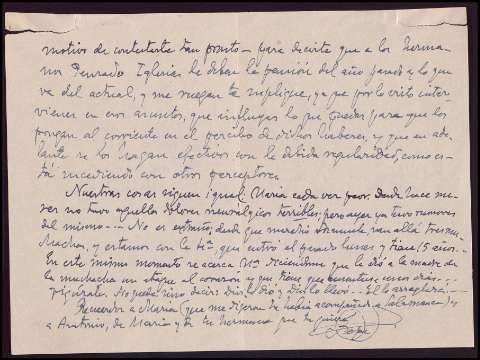 motivo de contestarte tan pronto - para decirte que a los herma-
nos Penrado Iglesia le deben la pensión del año pasado y lo que
va del actual, y me ruegan te suplique, ya que por lo visto inter-
vienes en esos asuntos, que influyas lo que puedas para que los
pongan al corriente en el percibo de dichos haberes, y que en ade-
lante se los hagan efectivos con la debida regularidad, como es-
tá sucediendo con otros perceptores.
Nuestras cosas siguen igual. María cada vez peor. Desde hace
no tuvo aquellos dolores neurálgicos terribles; pero ayer ya tuvo rumores
del mismo - - . No es extraño, desde que marchó van allá tres
y estamos con la 4ª, que entró el pasado lunes y tiene 15 años.
En este mismo momento se acerca Mª diciéndome que le dió a la madre de
la muchacha un ataque al corazón y que tiene que
Figúrate. No puedo sino decir: Dios lo dió, Dios lo llevó. El lo arreglará.
Recuerdos a María (que me dijeron te había acompañado a Salamanca) y
a Antonio, de María y de tu hermano que te quiere